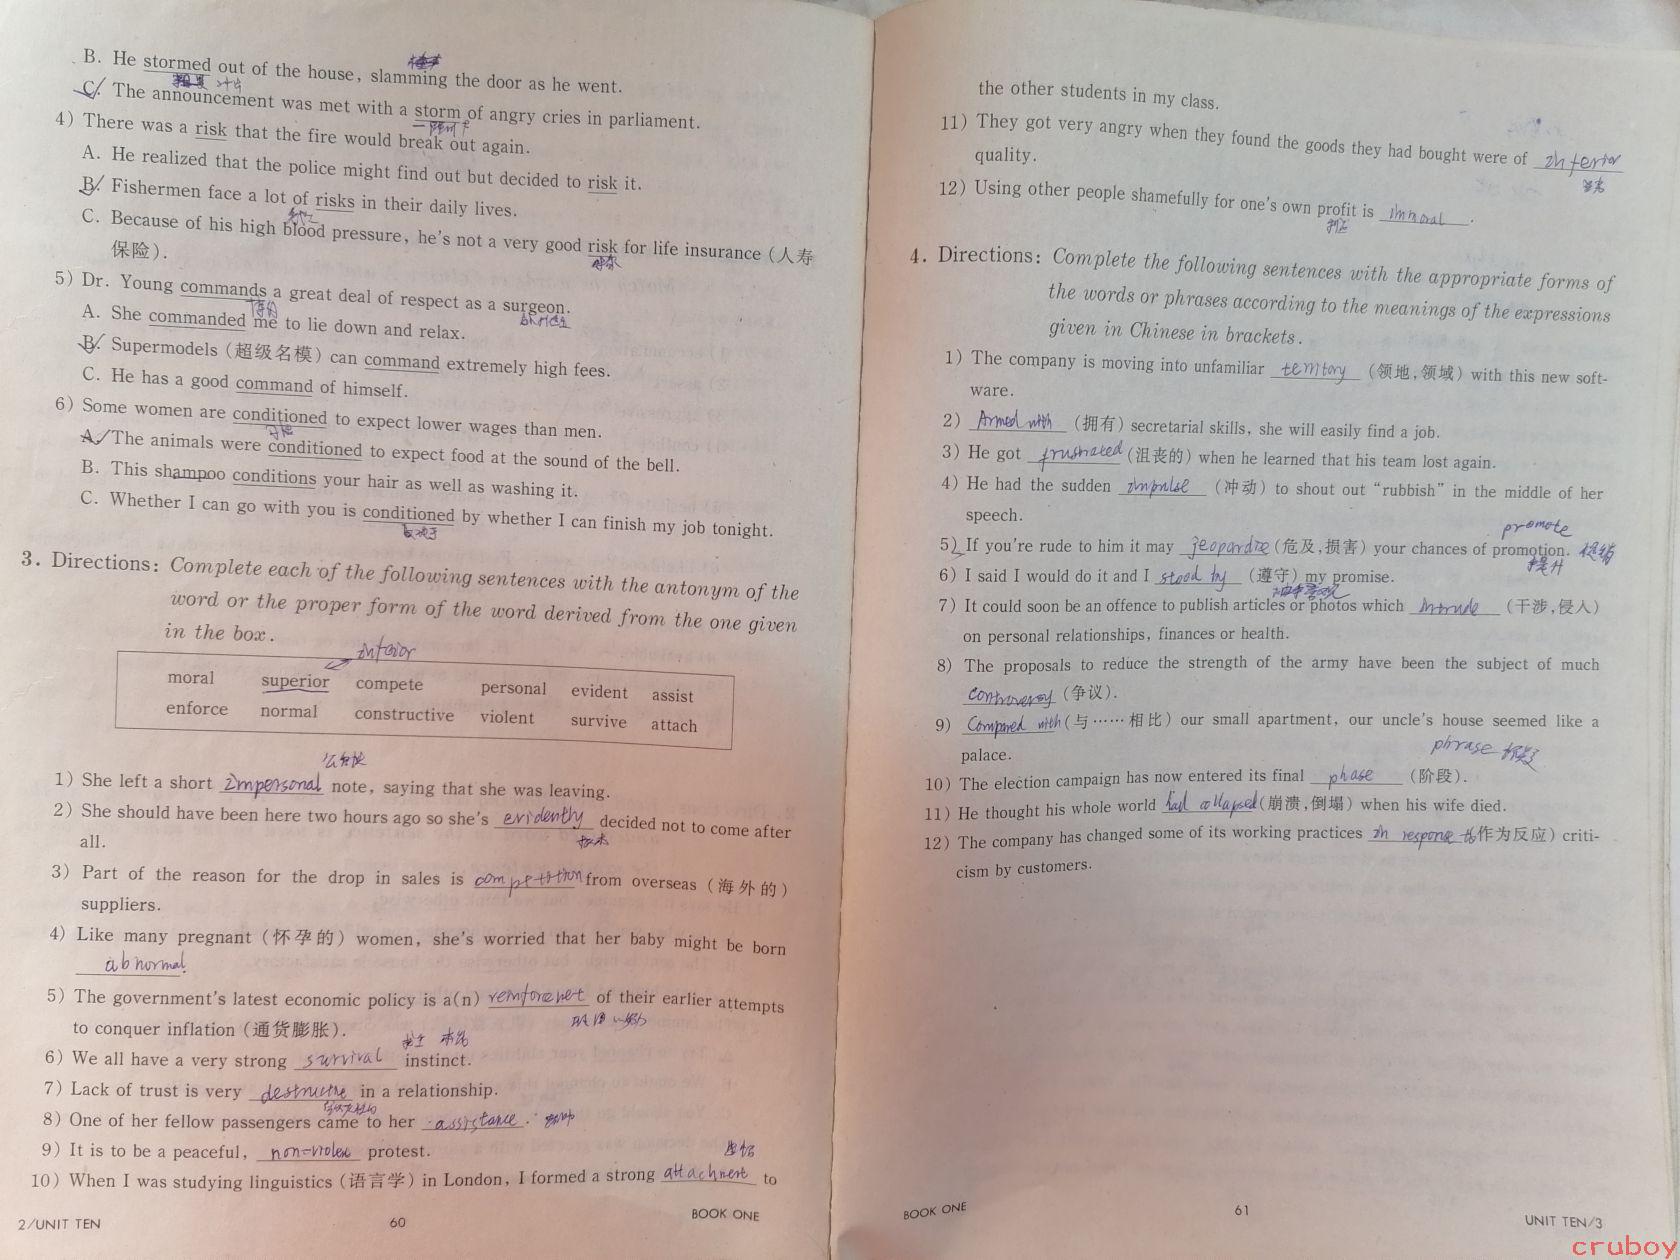 B. He stormed out of the house, slamming the door as he went.
C. The announcement was met with a storm of angry cries in parliament.
4) There was a risk that the fire would break out again.
A. He realized that the police might find out but decided to risk it.
B. Fishermen face a lot of risks in their daily lives.
C. Because of his high blood pressure, he's not a very good risk for life insurance (人寿
保险).
5) Dr. Young commands a great deal of respect as a surgeon.
A. She commanded me to lie down and relax.
B. Supermodels (超级名模) can command extremely high fees.
C. He has a good command of himself.
6) Some women are conditioned to expect lower wages than men.
A. The animals were conditioned to expect food at the sound of the bell.
B. This shampoo conditions your hair as well as washing it.
C. Whether I can go with you is conditioned by whether I can finish my job tonight.
3. Directions: Complete each of the following sentences with the antonym of the
word or the proper form of the word derived from the one given
in the box.
inferior
moral superior compete personal evident assist
enforce normal constructive violent survive attach
1) She left a short impersonal note, saying that she was leaving.
2) She should have been here two hours ago so she's evidently decided not to come after
all.
3) Part of the reason for the drop in sales is competition from overseas (海外的)
suppliers.
4) Like many pregnant (怀孕的) women, she's worried that her baby might be born
abnormal.
5) The government's latest economic policy is a(n) of their earlier attempts
to conquer inflation (通货膨胀).
6) We all have a very strong survival instinct.
7) Lack of trust is very destructive in a relationship.
8) One of her fellow passengers came to her assistance.
9) It is to be a peaceful, non-violent protest.
生活
10) When I was studying linguistics (语言学) in London, I formed a strong attachment to
2/UNIT TEN 60 BOOK ONE
the other students in my class.
11) They got very angry when they found the goods they had bought were of inferior
quality.
12) Using other people shamefully for one's own profit is immoral.
利益
4. Directions: Complete the following sentences with the appropriate forms of
the words or phrases according to the meanings of the expressions
given in Chinese in brackets.
1) The company is moving into unfamiliar territory (领地,领域) with this new soft-
ware.
2) Armed with (拥有) secretarial skills, she will easily find a job.
3) He got frustrated (沮丧的) when he learned that his team lost again.
4) He had the sudden impulse (冲动) to shout out "rubbish" in the middle of her
speech.
promote
5) If you're rude to him it may jeopardize (危及,损害) your chances of promotion. 促销
提升
6) I said I would do it and I stood by (遵守) my promise.
7) It could soon be an offence to publish articles or photos which intrude (干涉,侵人)
on personal relationships, finances or health.
8) The proposals to reduce the strength of the army have been the subject of much
controversy (争议).
9) Compared with (与……相比) our small apartment, our uncle's house seemed like a
palace.
phrase
10) The election campaign has now entered its final phase (阶段).
11) He thought his whole world had collapsed (崩溃,倒塌) when his wife died.
12) The company has changed some of its working practices in response to (作为反应) criti-
cism by customers.
BOOK ONE 61 UNIT TEN/3
cruboy